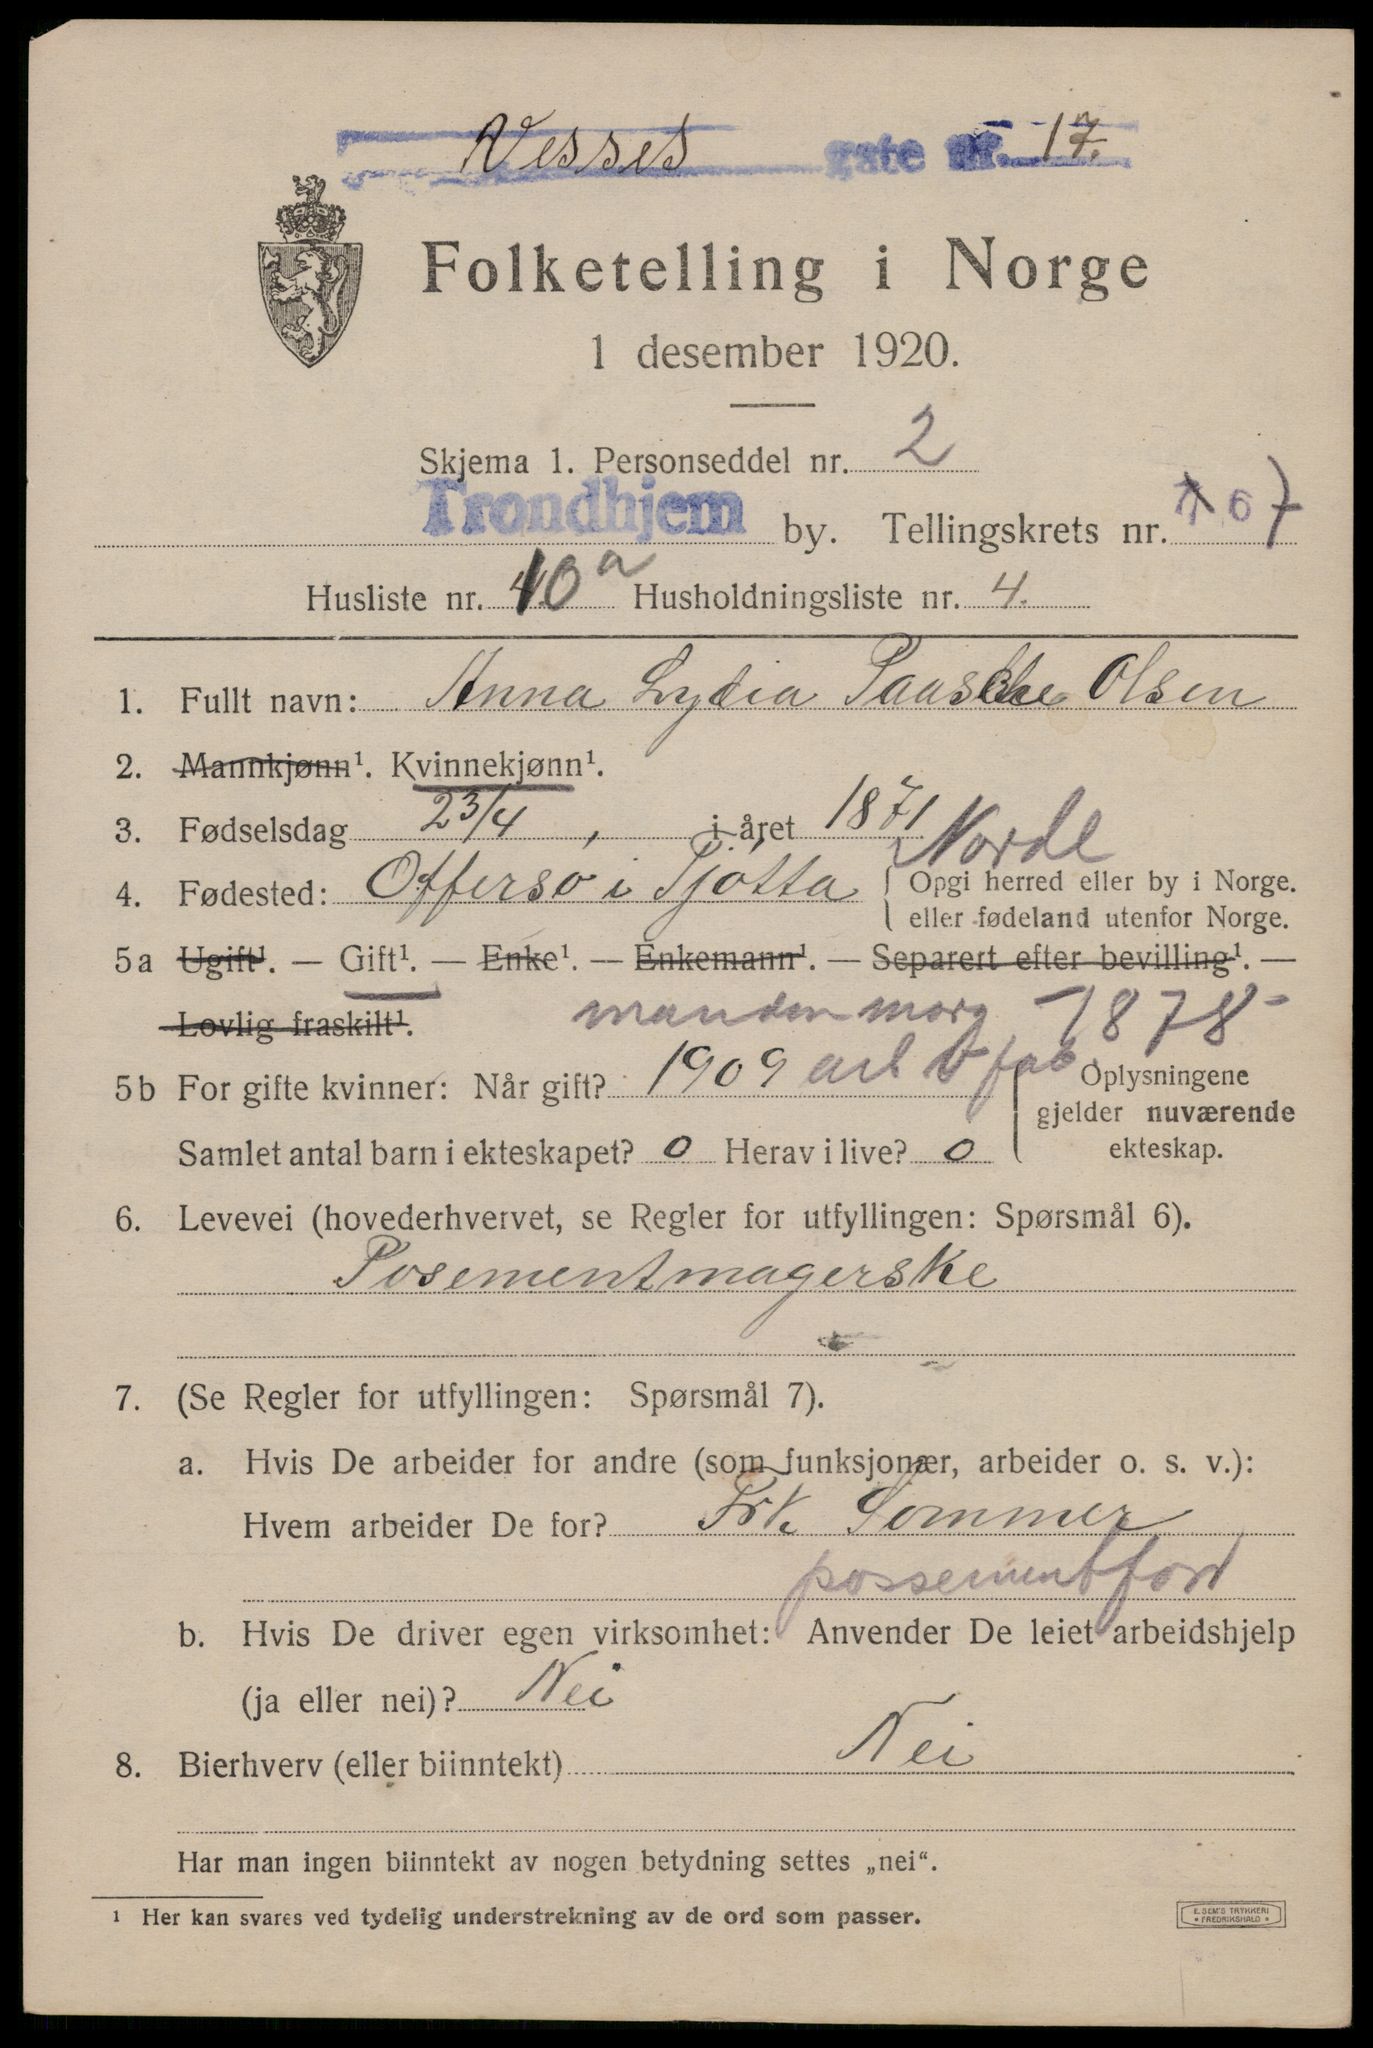 Wessels gate nr. 17.
Folketelling i Norge
1 desember 1920.
Skjema 1. Personseddel nr. 2
Trondhjem by. Tellingskrets nr. 67
Husliste nr. 10a Husholdningsliste nr. 4.
1. Fullt navn: Anna Lydia Paaske Olsen
2. Mannkjønn¹. Kvinnekjønn¹.
3. Fødselsdag 23/4, i året 1871
Nordl
4. Fødested: Offersø i Tjøtta
Opgi herred eller by i Norge.
eller fødeland utenfor Norge.
5a Ugift¹. — Gift¹. — Enke¹. — Enkemann¹. — Separert efter bevilling¹. —
Lovlig fraskilt¹. manden 1878
5b For gifte kvinner: Når gift? 1909
Samlet antal barn i ekteskapet? 0 Herav i live? 0
Oplysningene
gjelder nuværende
ekteskap.
6. Levevei (hovederhvervet, se Regler for utfyllingen: Spørsmål 6).
Posementmagerske
7. (Se Regler for utfyllingen: Spørsmål 7).
a. Hvis De arbeider for andre (som funksjonær, arbeider o. s. v.):
Hvem arbeider De for? Frk. Sommer
possementforr
b. Hvis De driver egen virksomhet: Anvender De leiet arbeidshjelp
(ja eller nei)? Nei
8. Bierhverv (eller biinntekt) Nei
Har man ingen biinntekt av nogen betydning settes „nei“.
¹ Her kan svares ved tydelig understrekning av de ord som passer.
E. SEM'S TRYKKERI
FREDRIKSHALD